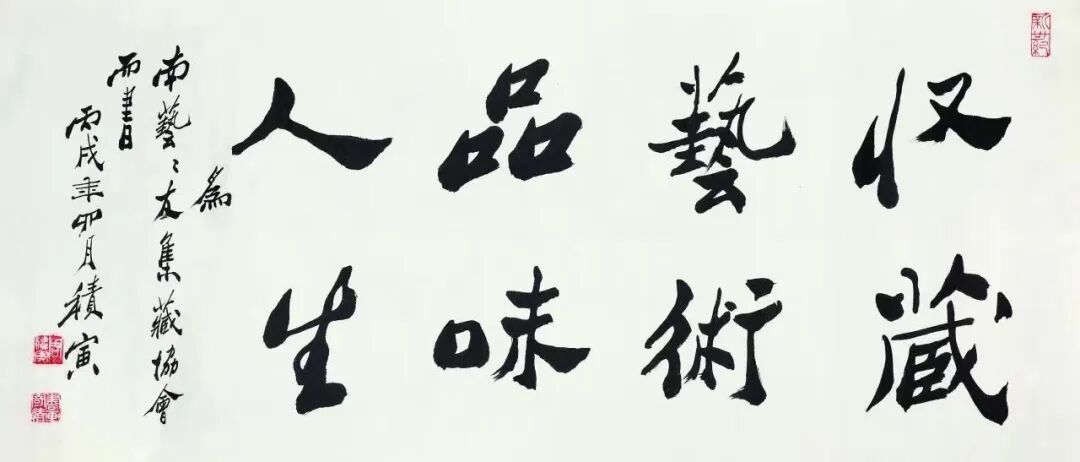 収藏
藝術
品味
人生
為
南藝〻友集藏協會
而書
丙戌年卯月積寅